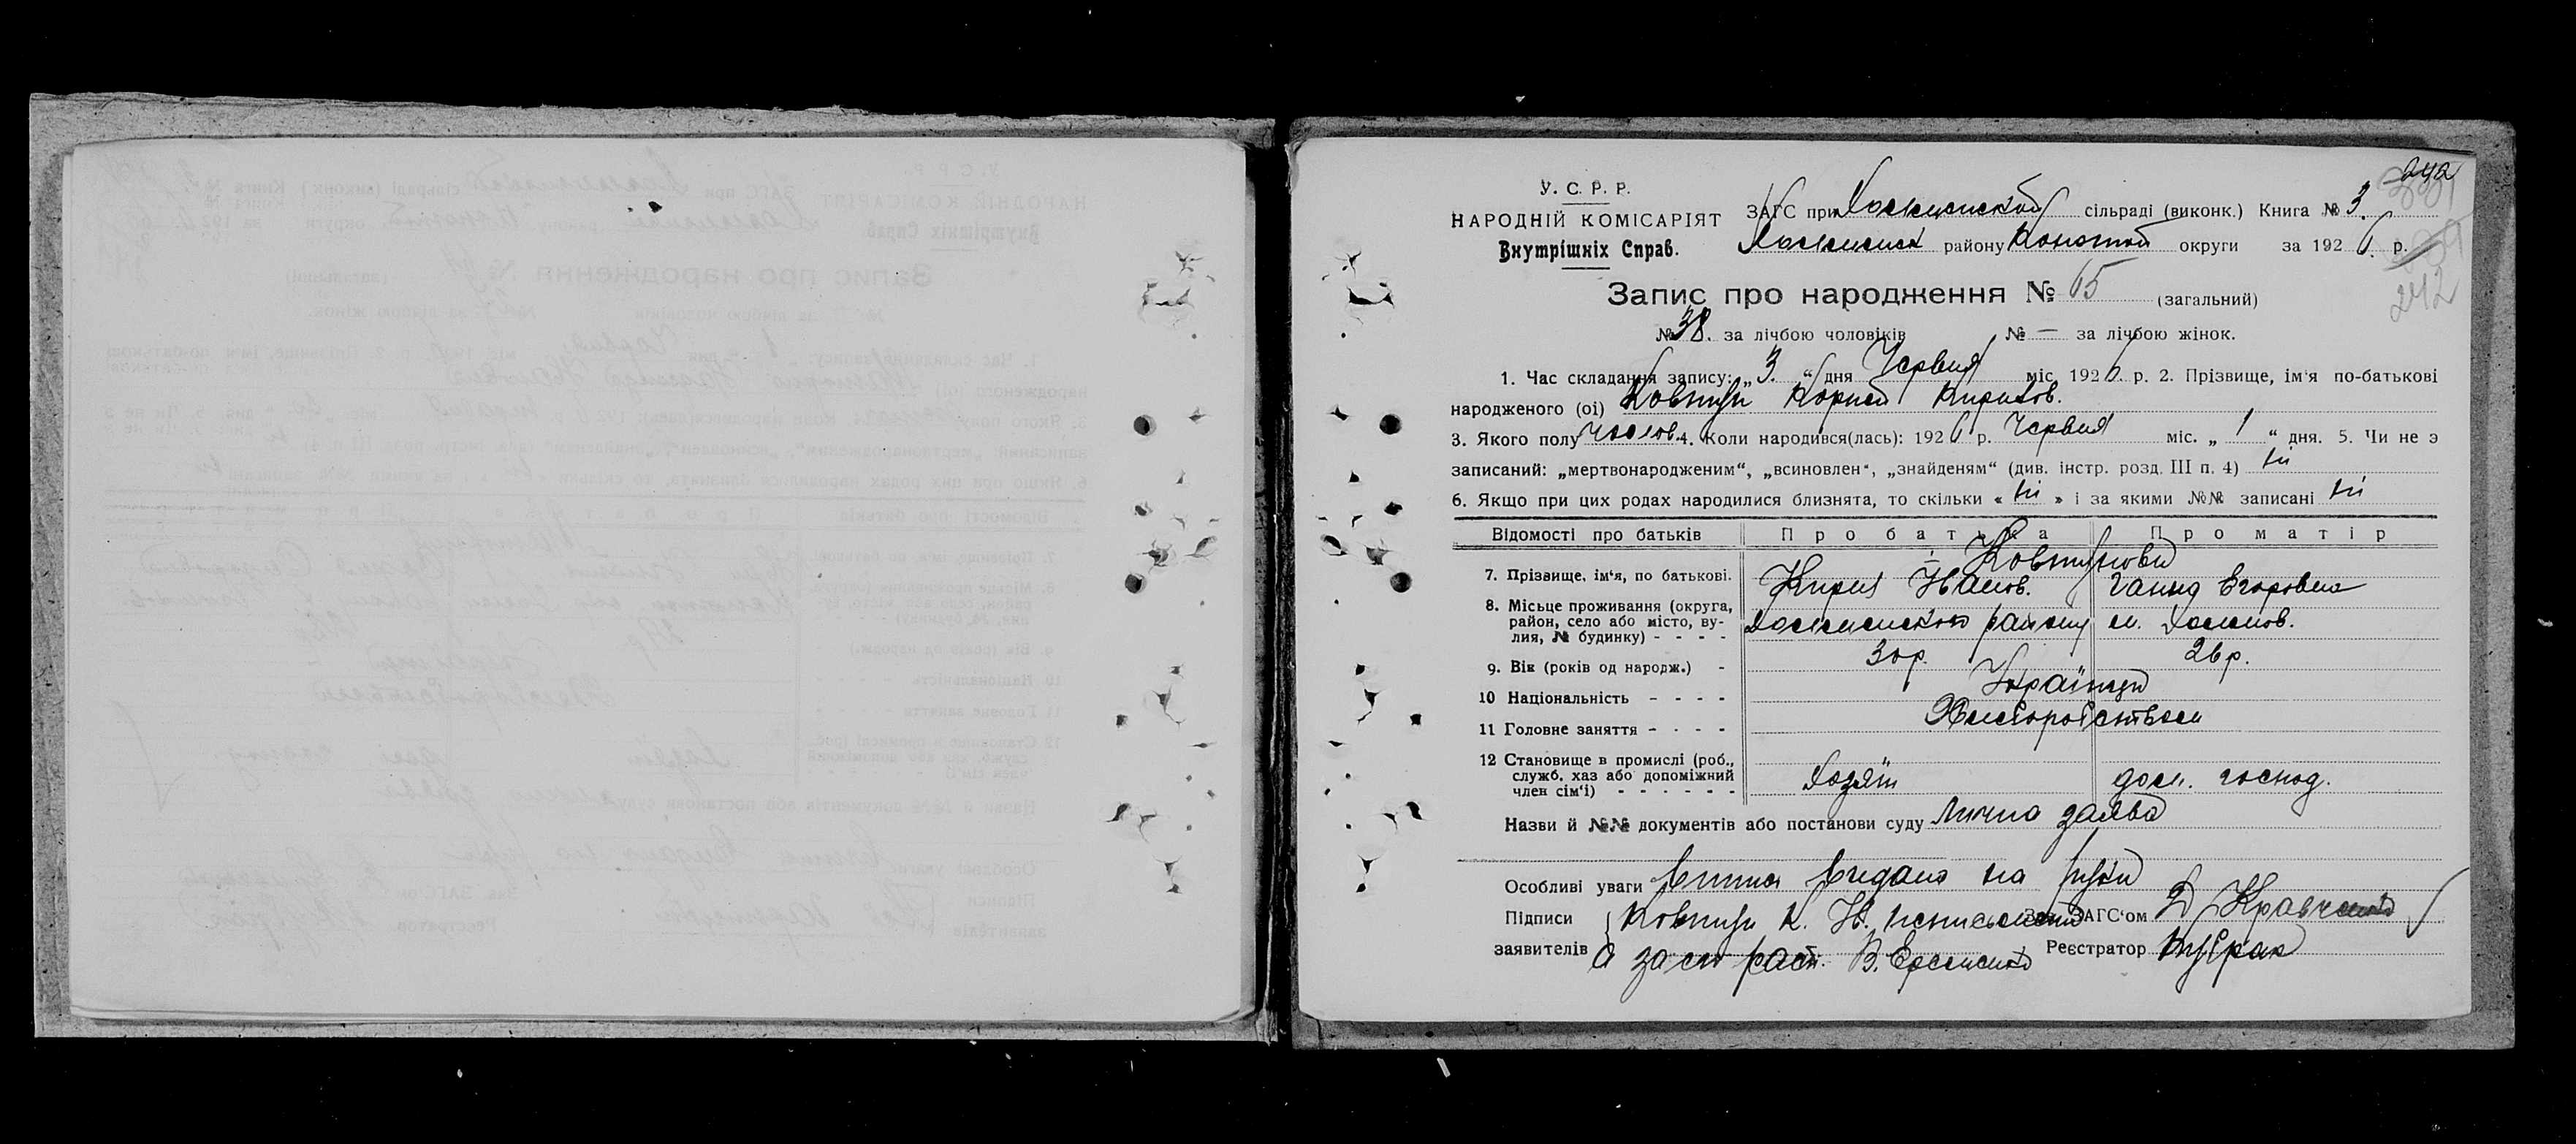 242
У. С. Р. Р.
НАРОДНІЙ КОМІСАРІЯТ
Внутрішніх Справ.
ЗАГС при сільраді (виконк.) Книга № 3.
району Конотоп округи за 1926 р.
242
Запис про народження № 65 (загальний)
№ 38. за лічбою чоловіків № — за лічбою жінок.
1. Час складання запису: „3.“ дня Червня міс 1926 р. 2. Прізвище, ім'я по-батькові
народженого (ої) Ковтун Корній Кирилов.
3. Якого полу чолов. 4. Коли народився(лась): 1926 р. Червня міс. „ 1 “ дня. 5. Чи не э
записаний: „мертвонародженим“, „всиновлен“, „знайденям“ (див. інстр. розд. III п. 4) ні
6. Якщо при цих родах народилися близнята, то скільки « ні » і за якими №№ записані ні
Відомості про батьків Про батька Про матір
7. Прізвище, ім'я, по батькові. Кирил Іванов. Ганна Егоровна
8. Місьце проживання (округа,
район, село або місто, ву-
лия, № будинку) - - - - району м.
9. Вік (років од народж.) - 30 р. 26 р.
10 Національність - - - - Українци
11 Головне заняття - - - - Хлиборобством
12 Становище в промислі (роб.,
служб. хаз або допоміжний
член сім'ї) - - - - - - Хозяїн дом. господ.
Назви й №№ документів або постанови суду Лична заява
Особливі уваги видана на руки
Підписи Ковтун К. И. Зав. ЗАГС'ом Кравченко
заявителів а за его расп. В. Реєстратор